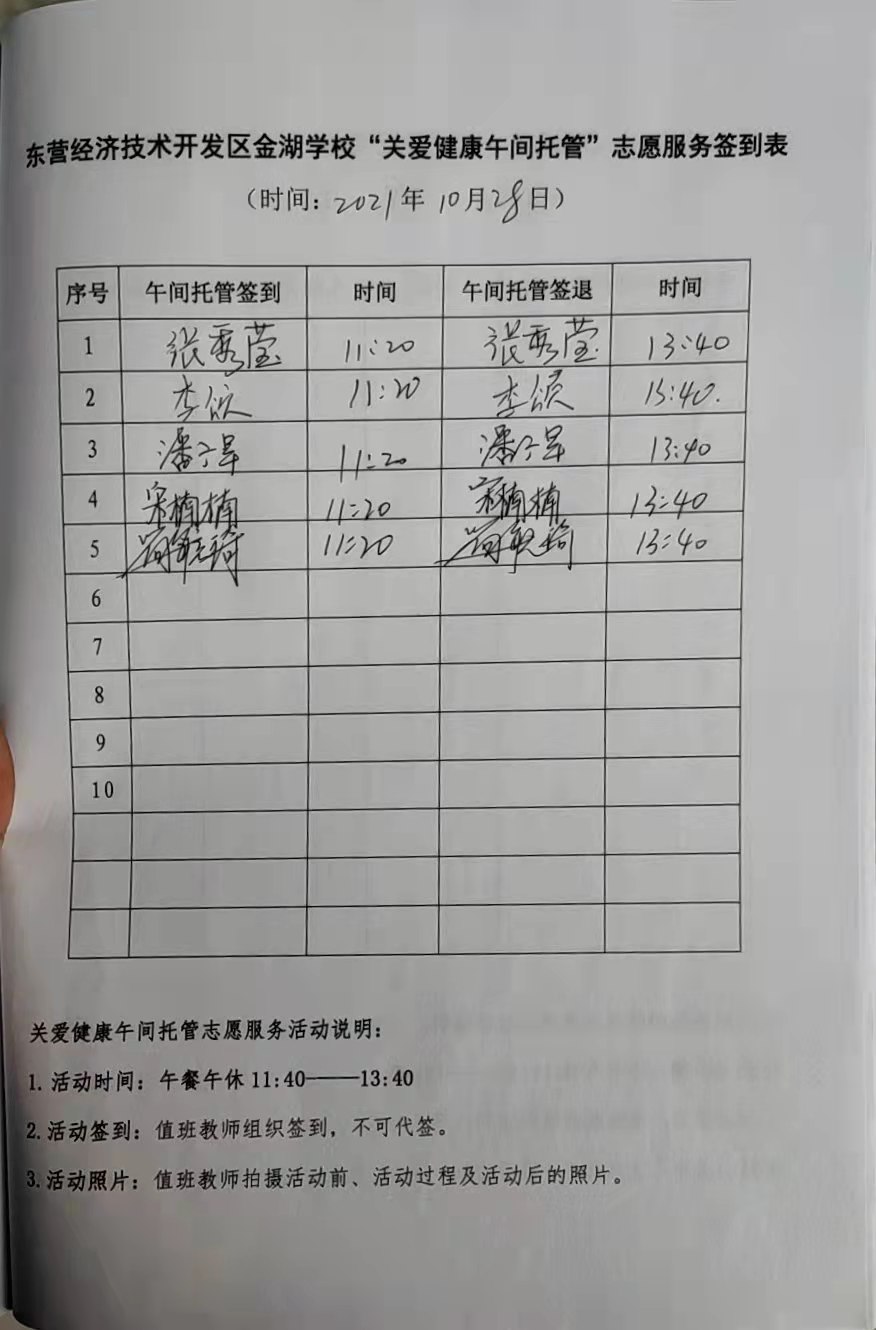 东营经济技术开发区金湖学校“关爱健康午间托管”志愿服务签到表
（时间：2021年 10月28日）
序号 午间托管签到 时间 午间托管签退 时间
1 张秀莹 11:20 张秀莹 13:40
2 李颂 11:20 李颂 13:40.
3 潘 11:20 潘 13:40
4 宋楠楠 11:20 宋楠楠 13:40
5 11:20 13:40
6
7
8
9
10
关爱健康午间托管志愿服务活动说明：
1. 活动时间：午餐午休 11:40——13:40
2. 活动签到：值班教师组织签到，不可代签。
3. 活动照片：值班教师拍摄活动前、活动过程及活动后的照片。